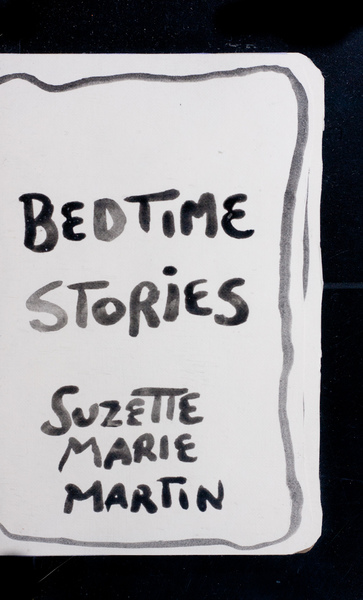 BEDTIME
STORIES
SUZETTE
MARIE
MARTIN